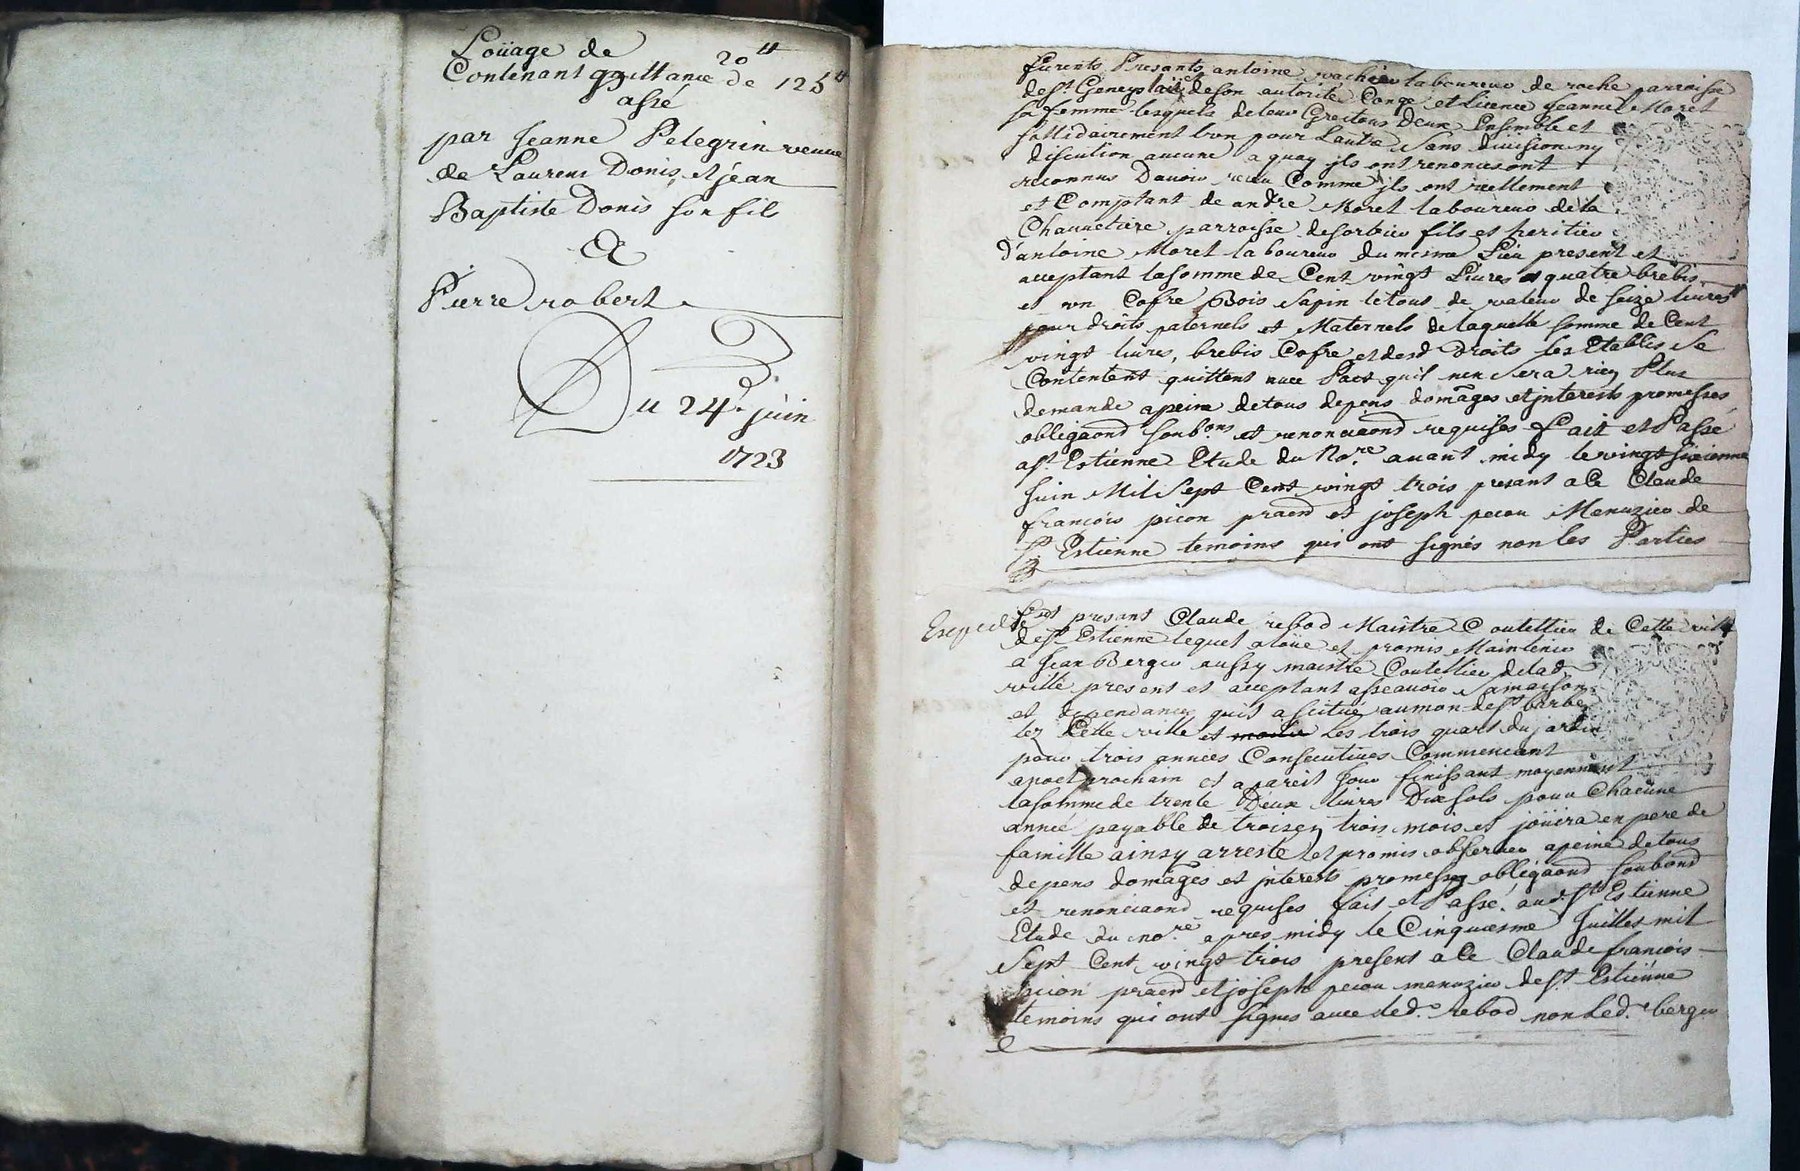 Loüage de 20ᵗᵗ
Contenant quittance de 125ᵗᵗ
assé
par Jeanne Pelegrin veuve
de Laurens Donis et jean
Baptiste Donis son fils
A
Pierre robert
Du 24.e juin
1723
furents Presants antoine laboureur de roche parroisse
de st Geneys de son autorité Congé et Licence Jeanne Moret
sa femme lesquels de leur Gré tous Deux Ensemble et
sollidairement l'un pour Lautre Sans division ny
discution aucune a quoy jls ont renoncés ont
reconnus Davoir receu Comme jls ont reellement
et Comptant de andré Moret laboureur de la
Chauvetiere parroisse de sorbier fils et heritier
d'antoine Moret laboureur du mesme Lieu present et
acceptant la somme de Cent vingt Livres et quatre brebis
et un Cofre Bois Sapin le tous de valeur de seize livres
pour droits paternels et Maternels de laquelle somme de Cent
vingt livres, brebis Cofre et desd droits les Etablis Se
Contentent quittent avec Pact quil nen Sera rien Plus
demandé a peine de tous depens domages et jnterests promesses
obligaond soubons et renonciaond requises fait et Passé
a st Estienne Etude du No.re avant midy le vingt sixieme
Juin Mil Sept Cent vingt trois presant a Ce Claude
francois picon praend et joseph pecou Menuzier de
st Estienne temoins qui ont signés non les Parties
Exped
fut presant Claude rebod Maistre Coutellier de Cette ville
de st Estienne lequel a loüé et promis Maintenir
a Jean Berger aussy maistre Coutellier de lad
ville present et acceptant asseavoir Sa maison
et dependance quil a scitué au mon de ste barbe
lez Cette ville et les trois quart du jardin
pour trois années Consecutives Commencant
a noel prochain et a pareil Jour finissant moyennant
la somme de trente Deux livres Dix sols pour Chacune
année payable de trois en trois mois et joüira en pere de
famille ainsy arresté et promis observer a peine de tous
depens domages et jnterests promesses obligaond soubond
et renonciaond requises fait et Passé aud. st Estienne
Etude du no.re apres midy le Cinquiesme Juillet mil
Sept Cent vingt trois present a Ce Claude francois
picon praend et joseph pecou menuzier de st Estienne
temoins qui ont signes avec led. rebod non led. berger